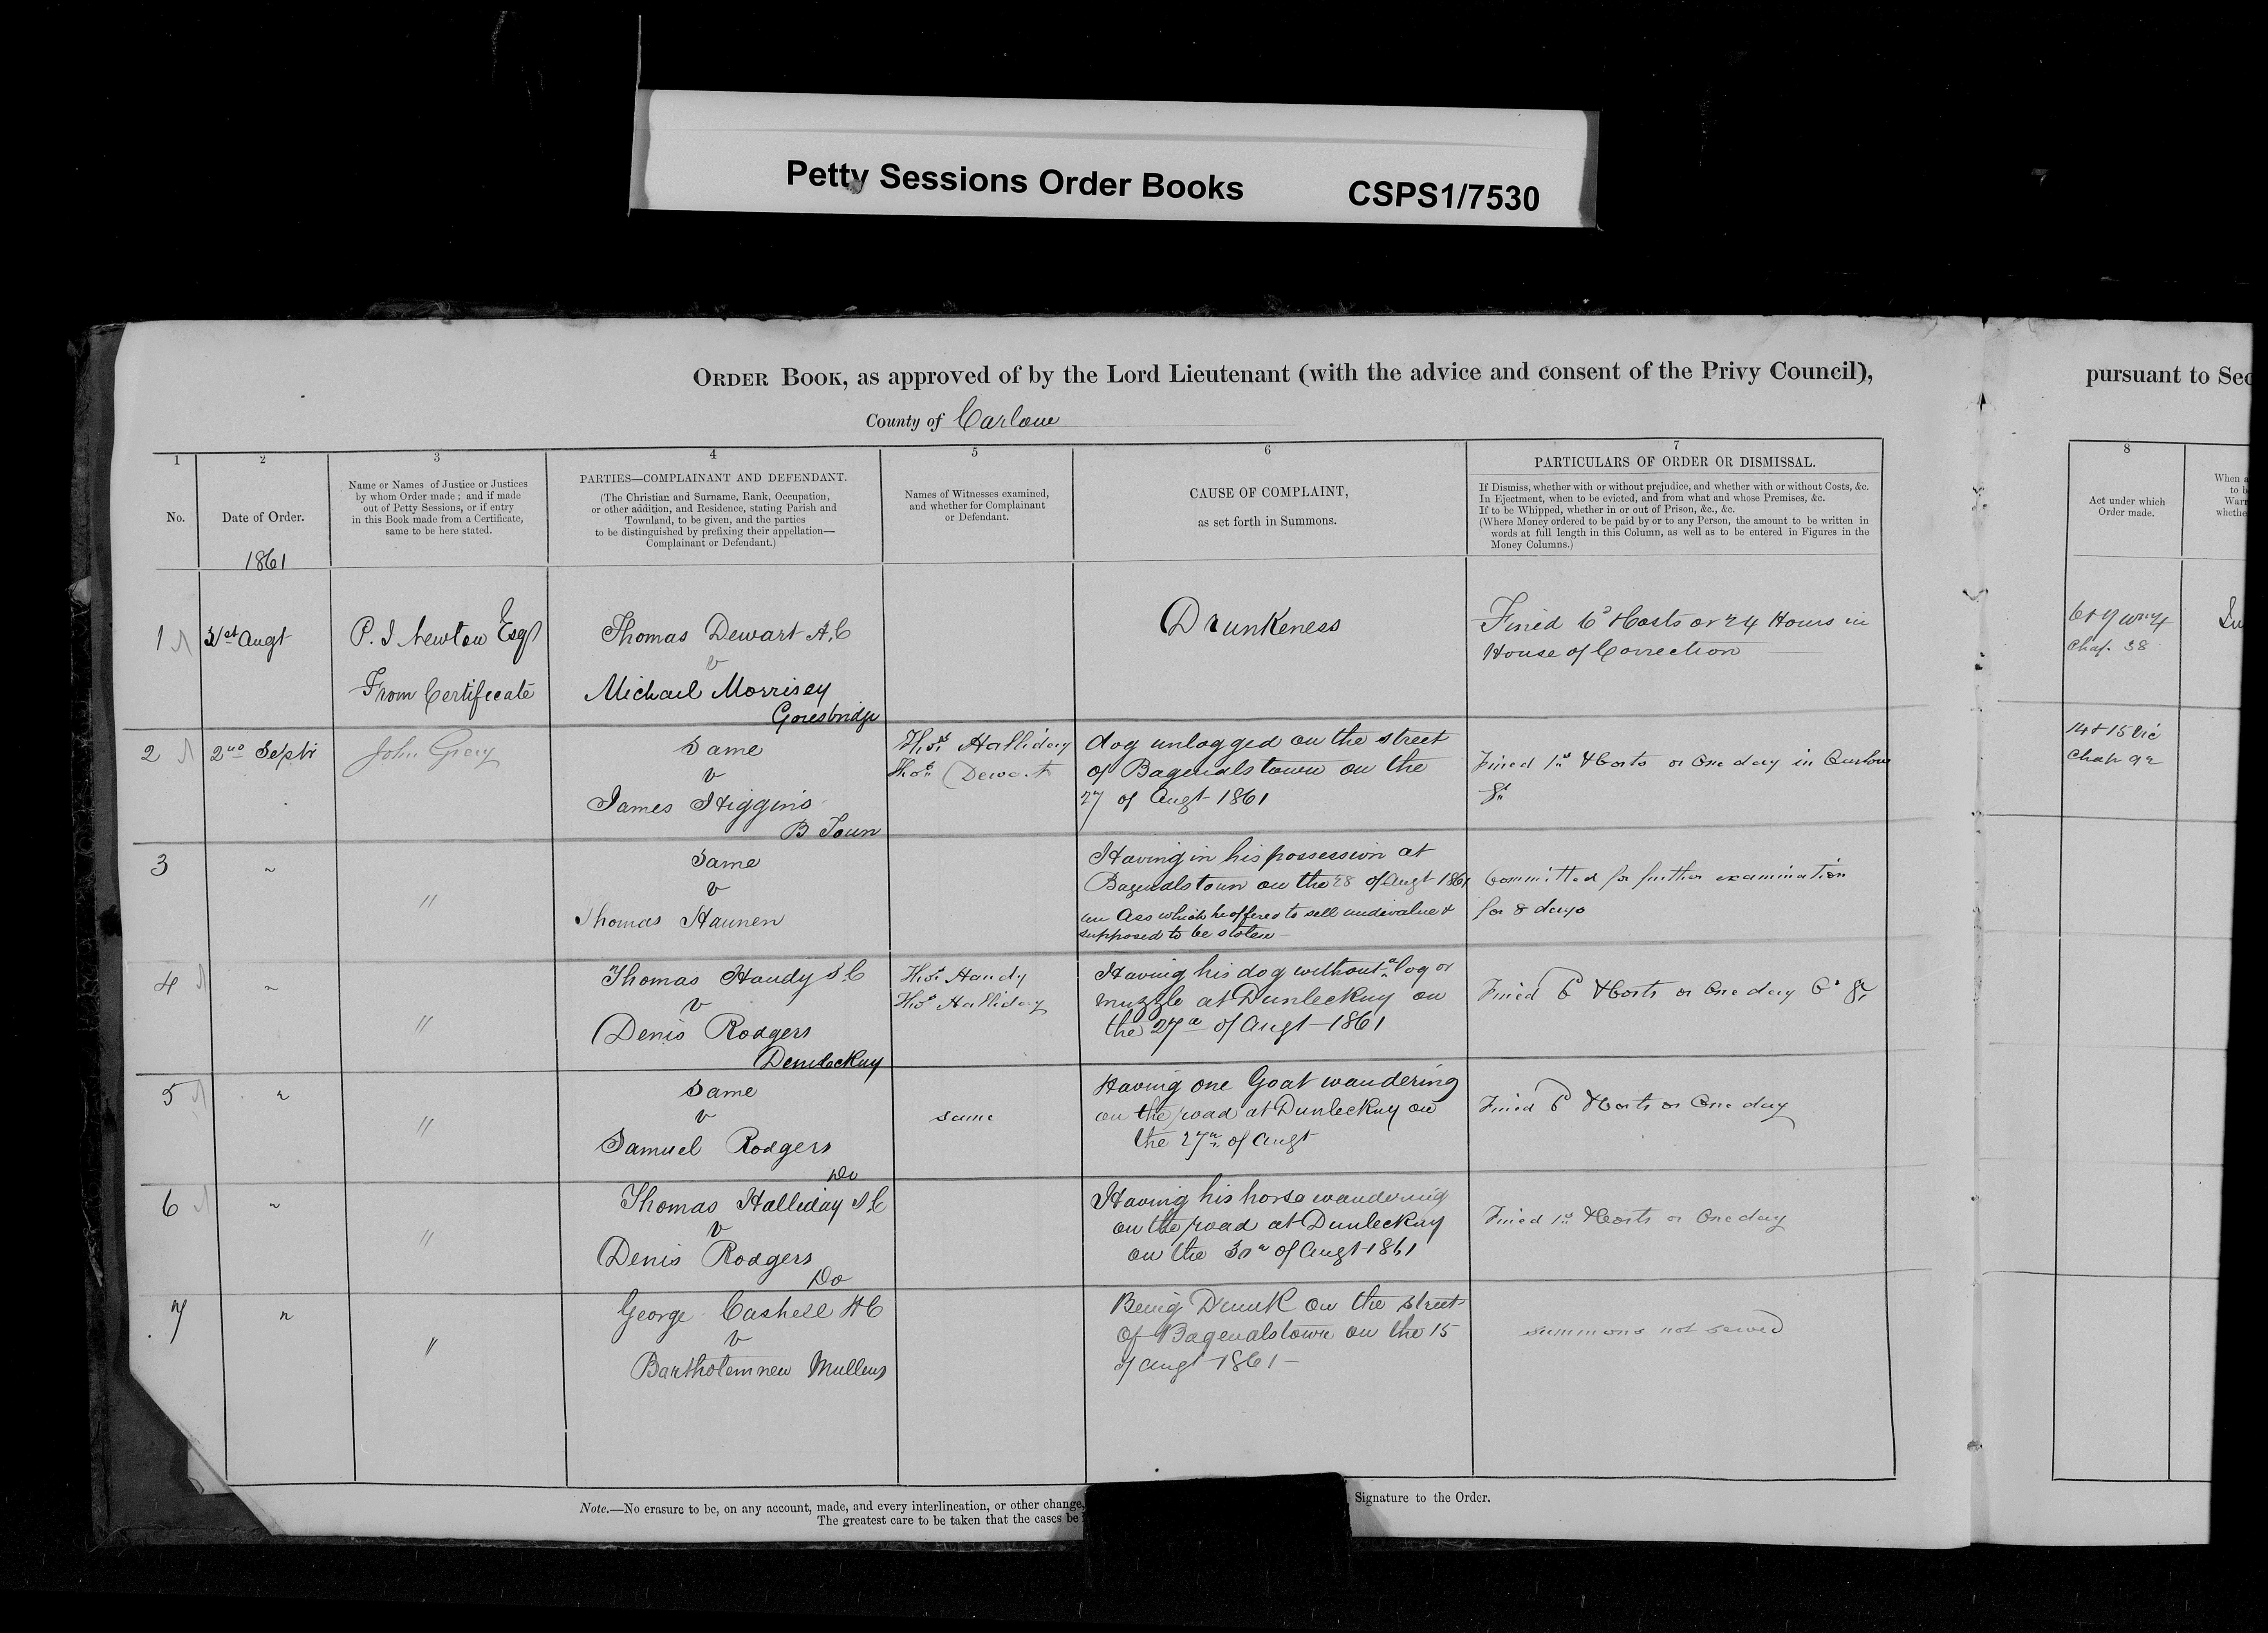 Petty Sessions Order Books CSPS1/7530
ORDER BOOK, as approved of by the Lord Lieutenant (with the advice and consent of the Privy Council),
pursuant to Sec
County of Carlow
1
No.
2
Date of Order.
1861
3
Name or Names of Justice or Justices
by whom Order made; and if made
out of Petty Sessions, or if entry
in this Book made from a Certificate,
same to be here stated.
4
PARTIES—COMPLAINANT AND DEFENDANT.
(The Christian and Surname, Rank, Occupation,
or other addition, and Residence, stating Parish and
Townland, to be given, and the parties
to be distinguished by prefixing their appellation—
Complainant or Defendant.)
5
Names of Witnesses examined,
and whether for Complainant
or Defendant.
6
CAUSE OF COMPLAINT,
as set forth in Summons.
7
PARTICULARS OF ORDER OR DISMISSAL.
If Dismiss, whether with or without prejudice, and whether with or without Costs, &c.
In Ejectment, when to be evicted, and from what and whose Premises, &c.
If to be Whipped, whether in or out of Prison, &c., &c.
(Where Money ordered to be paid by or to any Person, the amount to be written in
words at full length in this Column, as well as to be entered in Figures in the
Money Columns.)
8
Act under which
Order made.
When a
to b
Warr
whethe
1
31st Augt
P. J Newton Esqr
From Certificate
Thomas Dewart A.C
v
Michael Morrisey
Goresbridge
Drunkeness
Fined 6d & Costs or 24 Hours in
House of Correction
6 & 7 Wm 4
Chap. 38
2
2nd Septr
John Gray
Same
v
James Higgins
B Town
Thos Halliday
Thos Dewart
dog unlogged on the street
of Bagenalstown on the
27 of Augt 1861
Fined 1s & Costs or One day in Carlow
14 & 15 Vic
Chap 92
3
"
Same
v
Thomas Haunen
Having in his possession at
Bagenalstown on the 28 of Augt 1861
an Ass which he offered to sell undervalue &
supposed to be stolen
Committed for further examination
for 8 days
4
"
Thomas Handy S.C
v
Denis Rodgers
Dunleckny
Thos Handy
Thos Halliday
Having his dog without a log or
muzzle at Dunleckny on
the 27th of Augt 1861
Fined 6d & Costs or One day
5
"
Same
v
Samuel Rodgers
Do
same
Having one Goat wandering
on the road at Dunleckny on
the 27th of Augt
Fined 6d & Costs or One day
6
"
Thomas Halliday S.C
v
Denis Rodgers
Do
Having his horse wandering
on the road at Dunleckny
on the 30th of Augt 1861
Fined 1s & Costs or One day
7
"
George Cashell H C
v
Bartholemnew Mullens
Being Drunk on the street
of Bagenalstown on the 15
of Augt 1861
summons not served
Note.—No erasure to be, on any account, made, and every interlineation, or other change,
Signature to the Order.
The greatest care to be taken that the cases be